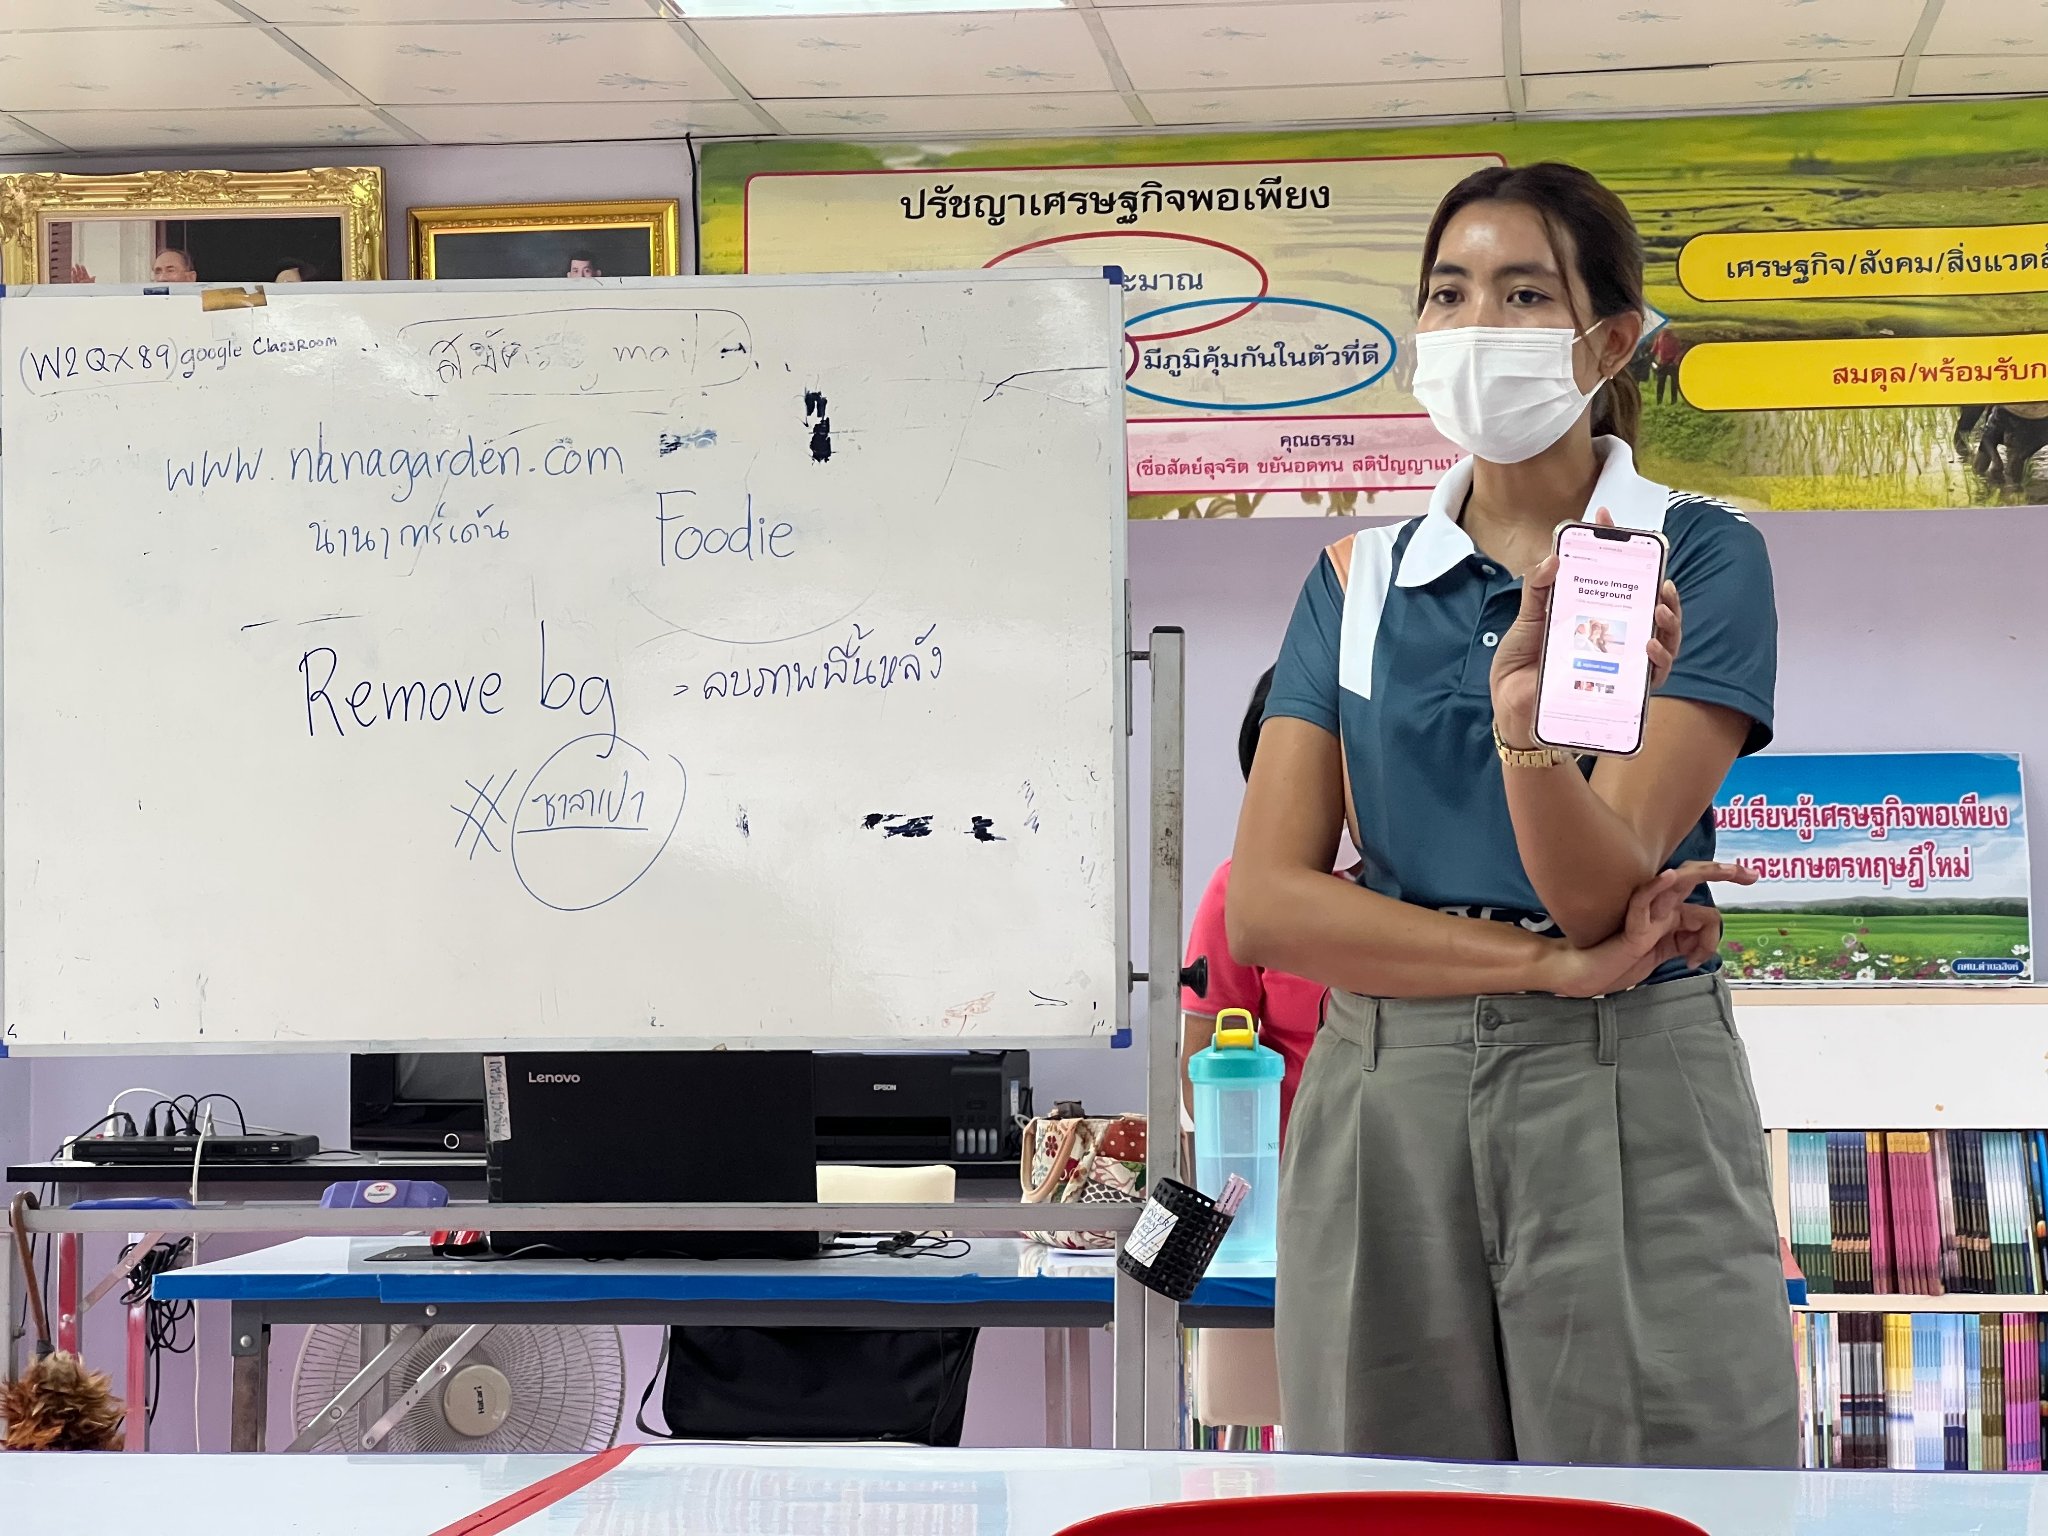 ปรัชญาเศรษฐกิจพอเพียง
มีภูมิคุ้มกันในตัวที่ดี
คุณธรรม
(ซื่อสัตย์สุจริต ขยันอดทน สติปัญญา
เศรษฐกิจ/สังคม/สิ่งแวดล้
สมดุล/พร้อมรับ
(W2QX89) google Classroom
สมัคร mail
www.nanagarden.com
นานาการ์เด้น
Foodie
Remove bg = ลบภาพพื้นหลัง
# ซาลาเปา
Remove Image
Background
Upload Image
นย์เรียนรู้เศรษฐกิจพอเพียง
และเกษตรทฤษฎีใหม่
กศน.ตำบลสิงห์
Lenovo
EPSON
PHILIPS
Hatari